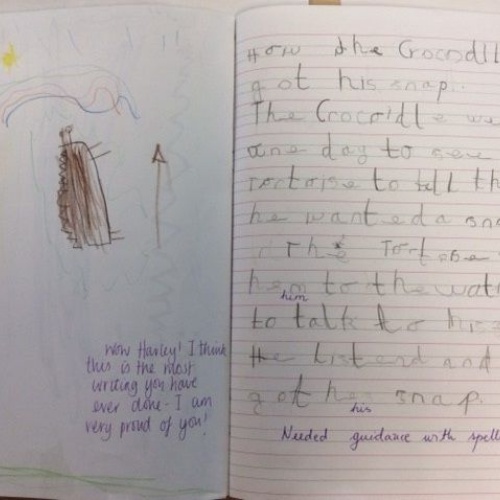 Wow Harley! I think
this is the most
writing you have
ever done. I am
very proud of you!
How the Crocodll
got his snap.
The Crocoidle we
one day to see
tortoise to tell th
he wanted a sna
The Tortose
hem to the wat
him
to talk to his
He Listend and
got hes snap.
his
Needed guidance with spell